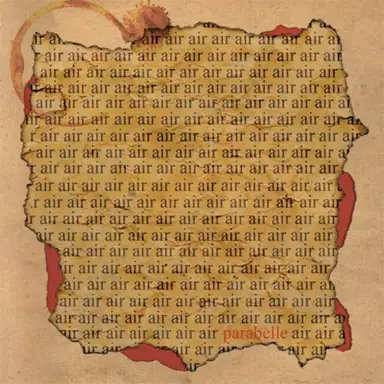 ir ai air air air air air air air air
air air air air air air air air air air air air
air air air air air air air air air air air air air
air air air air air air air air air air air air air
air air air air air air air air air air air air air
air air air air air air air air air air air air air
air air air air air air air air air air air air air
air air air air air air air air air air air air air
air air air air air air air air air air air air air
air air air air air air air air air air air air air
air air air air air air air air air air air air air
air air air air air air air air air air air air air
air air air air air air air air air air air air
air air air air air air air air air air air
air air air air air air air air air air air
air air air air air air air air air air air air
air air air air air air air air air air air
air air air air air air air air air air air air
air air air air air air parabelle air air
air air air air air air air air air air
air